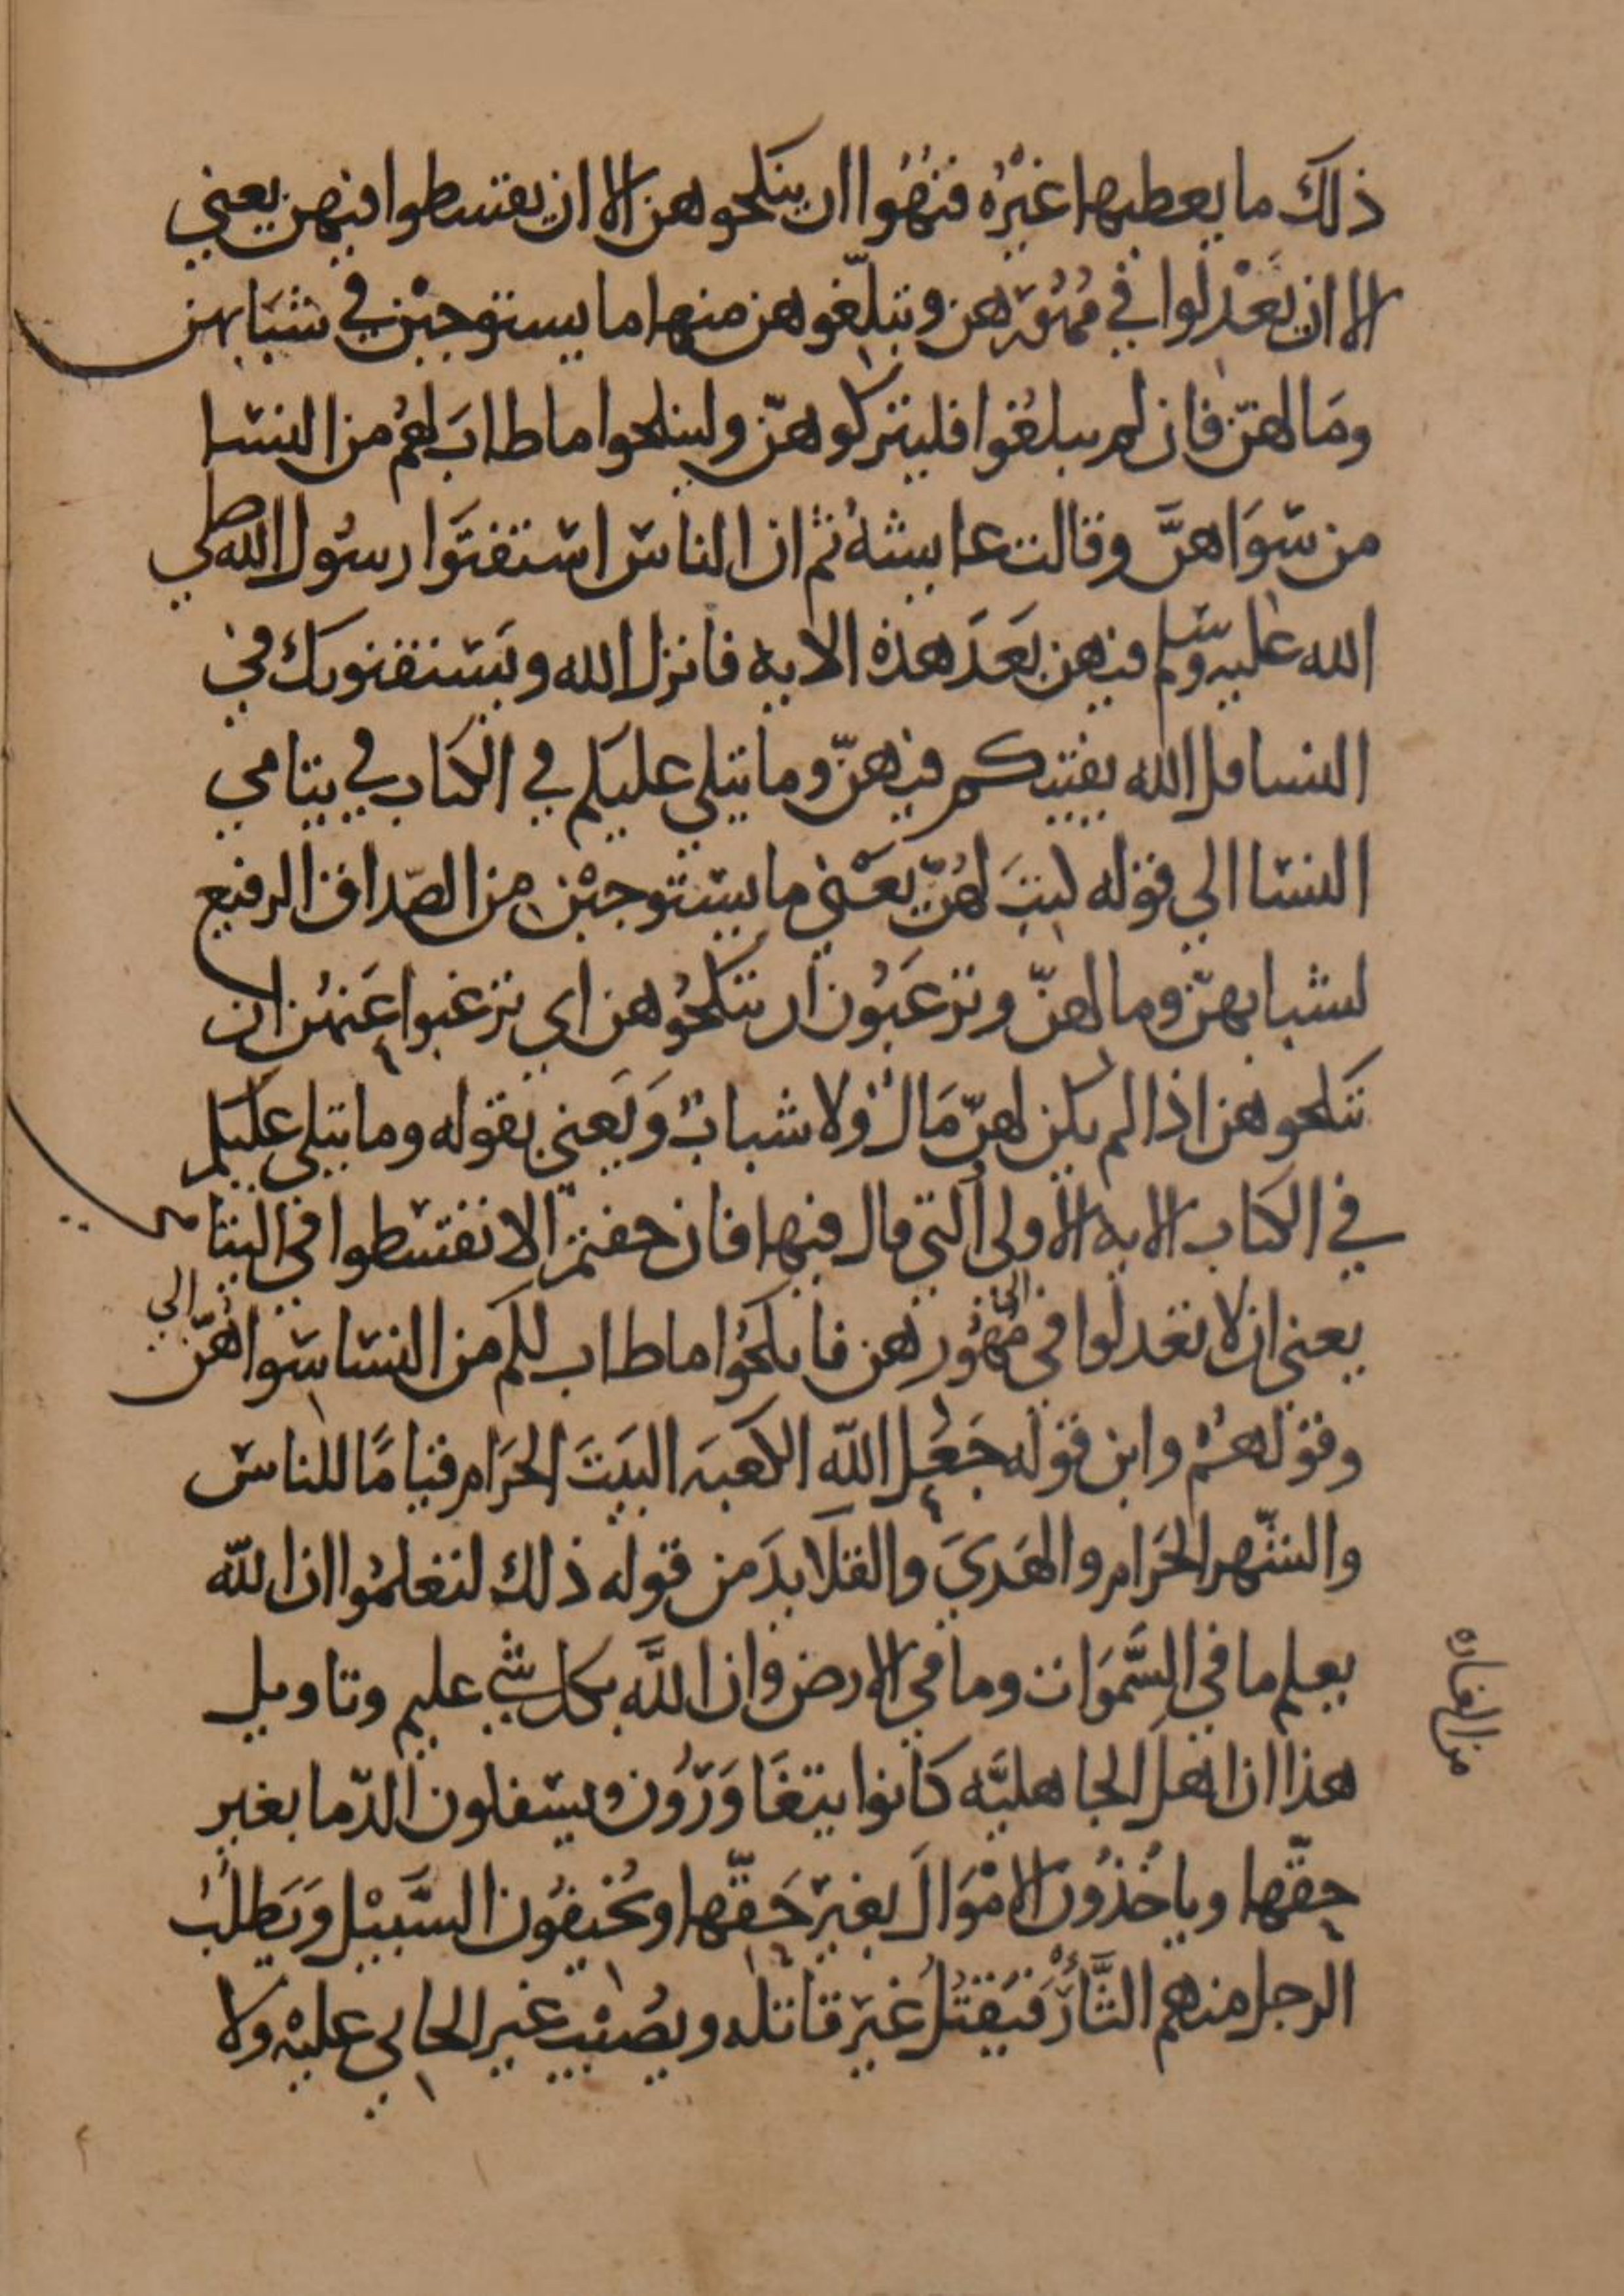 ذلك ما يعطيها غيْرُه فنُهُوا ان ينكحوهن الا ان يقسطوا فيهن يعني
الا ان يَعْدلوا في مُهُورهن ويبلّغوهن منها ما يستوجبْن في شبَابهن
ومَالهنّ فان لم يبلغُوا فليتركوهنّ ولينكحوا ما طابَ لهُم من النسا
من سوَاهنَّ وقالت عايشهُ ثم ان الناس استفتَوا رسُول الله صلي
الله عليه وسلم فيهن بَعدَ هذه الايه فانزل الله ويَستفتونك في
النسا قل الله يفتيكم فيهنّ وما يتلي عليكم في الكتاب في يتامي
النسا الي قوله كتبَ لهُنّ يعْني ما يستوجبْن من الصّداق الرفيع
لشبابهنّ ومالهنّ وترغَبُون ان تنكحُوهن اي ترغبوا عَنهُن ان
تنكحوهن اذا لم يكن لهنّ مَالٌ ولا شبابٌ وَيَعني بقوله وما يتلي عليكم
في الكتاب الايه الاولى التي قال فيها فان خفتم الا تقسطوا في اليتامى
يعني ان لا تعدلوا في مُهُورهن فانكحُوا ما طاب لكم من النسا سواهنّ الي
وقولهُم واين قوله جَعَل الله الكعبَه البيَتَ الحرَام قيامًا للناس
والشّهر الحرَام والهَديَ والقلايدَ من قوله ذلك لتعلمُوا ان الله
يعلم ما في السَّموَات وما في الارض وان اللَّه بكل شي عليم وتاويل
هذا ان اهل الجاهليَّه كانوا يتغَاوَرُون ويسفكون الدّما بغير
حقّها وياخُذُون الامْوَالَ بغير حَقّها ويُخيفُون السَّبيْل وَيَطلُبُ
الرجل منهم الثَّأرَ فيَقتُلُ غيرَ قاتله ويصُيْب غير الجاني عليْه ولا
من الغاره